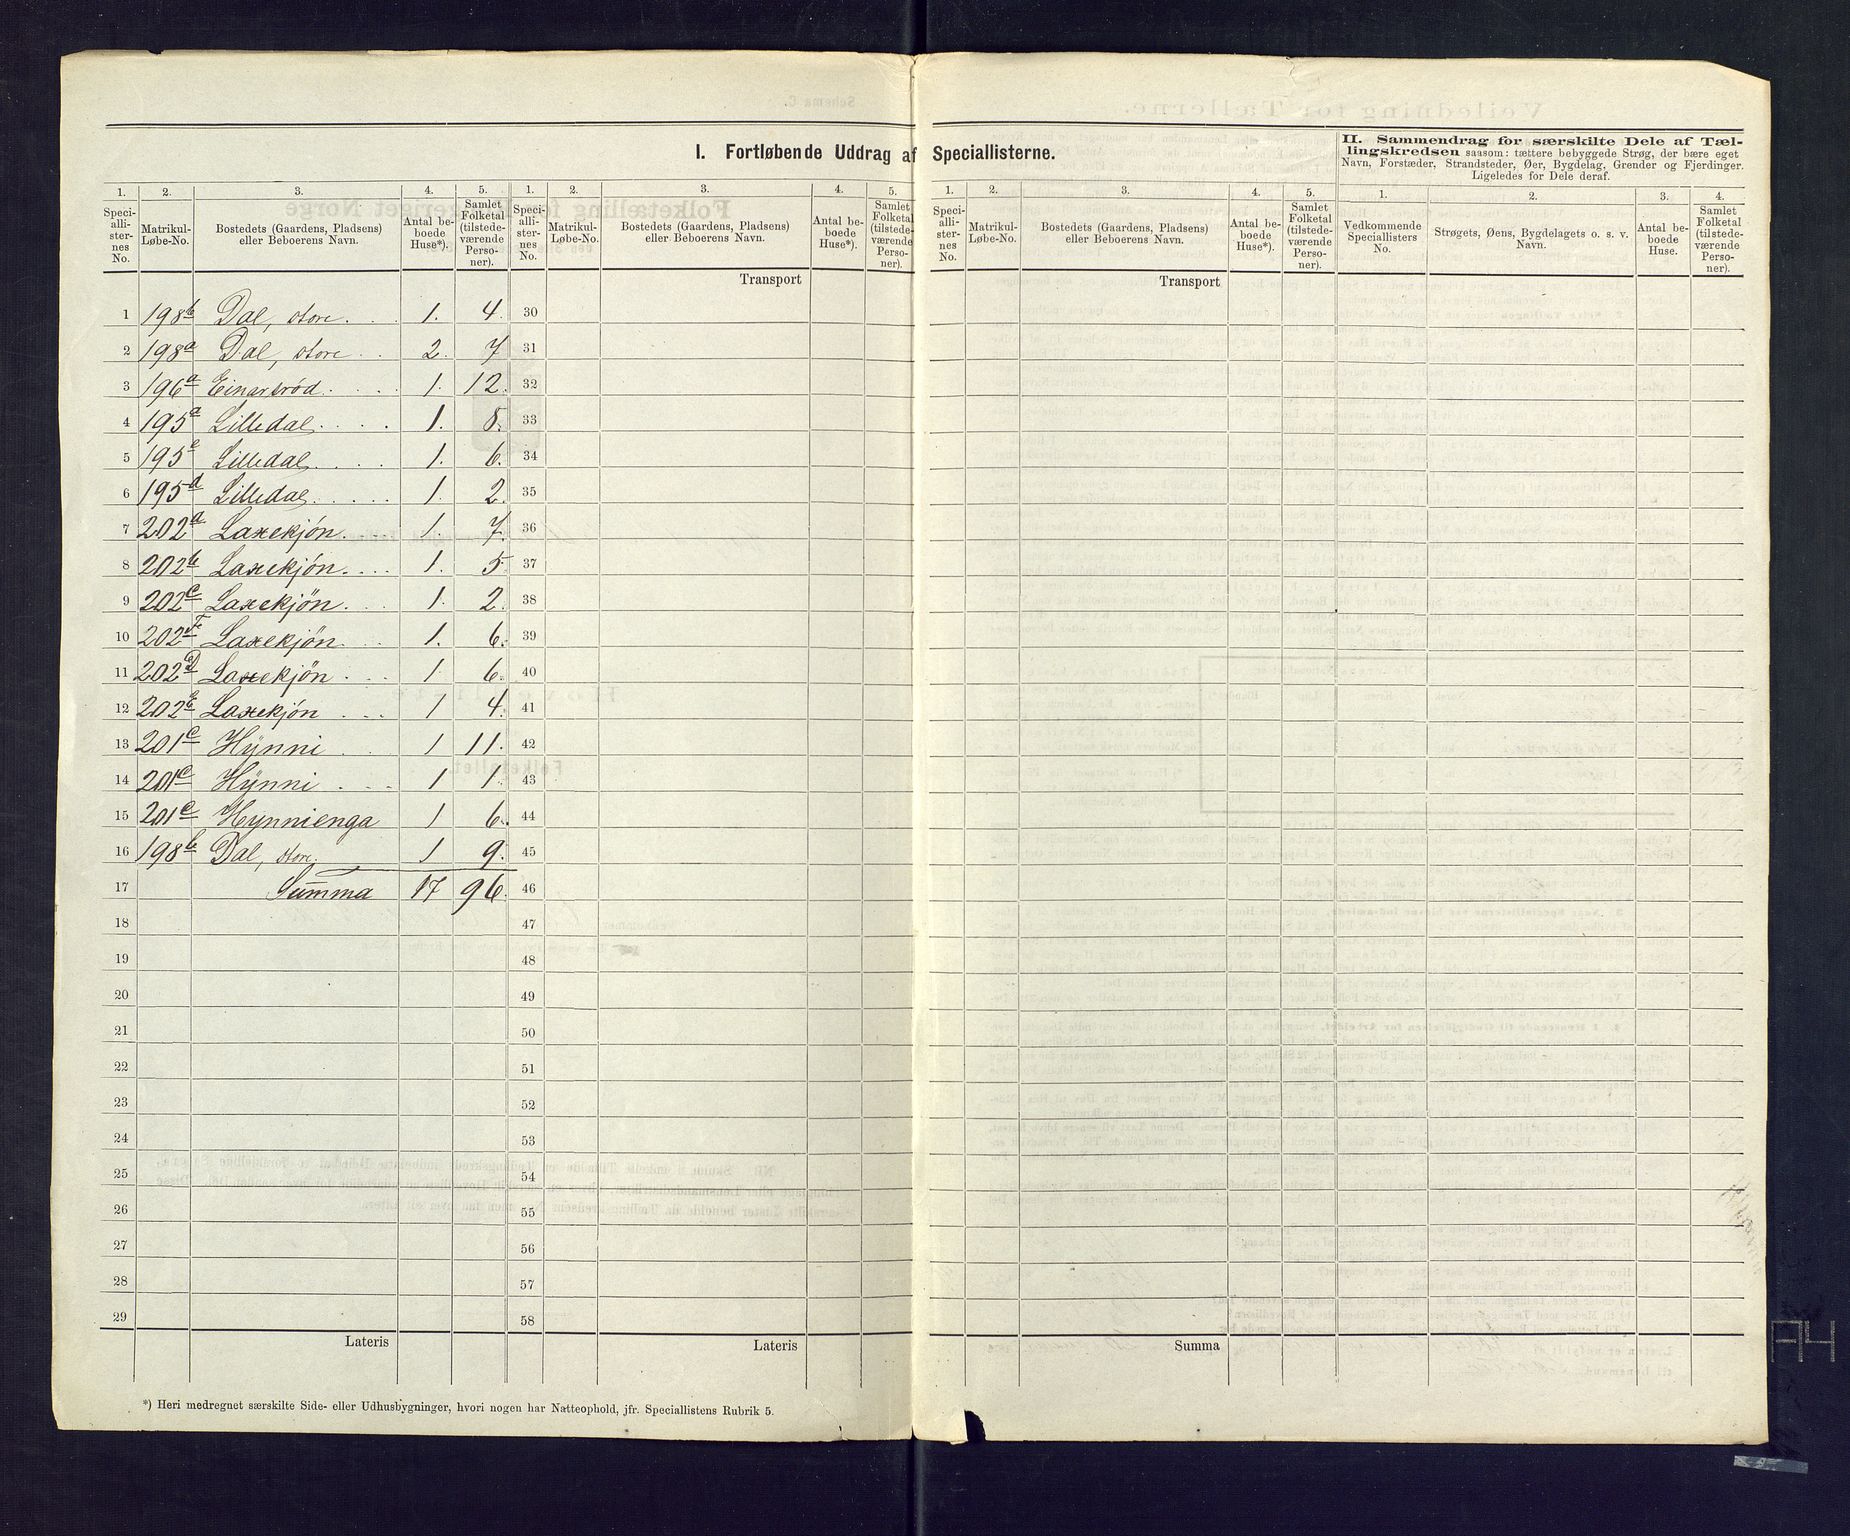 I. Fortløbende Uddrag af Speciallisterne.
II. Sammendrag for særskilte Dele af Tæl-
lingskredsen saasom: tættere bebyggede Strøg, der bære eget
Navn, Forstæder, Strandsteder, Øer, Bygdelag, Grender og Fjerdinger.
Ligeledes for Dele deraf.
1. 2. 3. 4. 5. 1. 2. 3. 4. 5. 1. 2. 3. 4. 5. 1. 2. 3. 4.
Speci-
alli-
ster-
nes
No.
Matrikul-
Løbe-No.
Bostedets (Gaardens, Pladsens)
eller Beboerens Navn.
Antal be-
boede
Huse*).
Samlet
Folketal
(tilstede-
værende
Perso-
ner).
Speci-
alli-
ster-
nes
No.
Matrikul-
Løbe-No.
Bostedets (Gaardens, Pladsens)
eller Beboerens Navn.
Antal be-
boede
Huse*).
Samlet
Folketal
(tilstede-
værende
Perso-
ner).
Speci-
alli-
ster-
nes
No.
Matrikul-
Løbe-No.
Bostedets (Gaardens, Pladsens)
eller Beboerens Navn.
Antal be-
boede
Huse*).
Samlet
Folketal
(tilstede-
værende
Perso-
ner).
Vedkommende
Speciallisters
No.
Strøgets, Øens, Bygdelagets o. s. v.
Navn.
Antal be-
boede
Huse.
Samlet
Folketal
(tilstede-
værende
Perso-
ner).
Transport Transport
1 198b Dal, store. 1. 4. 30
2 198a Dal, store 2. 7 31
3 196a Einarsrød. 1. 12. 32
4 195a Lilledal 1. 8. 33
5 195 Lilledal 1. 6. 34
6 195d Lilledal 1. 2. 35
7 202a Laxekjön. 1. 7. 36
8 202b Laxekjön. 1. 5. 37
9 202c Laxekjön. 1. 2. 38
10 202 Laxekjön. 1. 6. 39
11 202 Laxekjön 1. 6. 40
12 202 Laxekjön 1 4. 41
13 201c Hynni 1 11. 42
14 201c Hynni 1 1. 43
15 201c Hynnienga 1 6. 44
16 198b Dal, store. 1 9. 45
17 Summa 17 96. 46
18 47
19 48
20 49
21 50
22 51
23 52
24 53
25 54
26 55
27 56
28 57
29 58
Lateris Lateris Summa
*) Heri medregnet særskilte Side- eller Udhusbygninger, hvori nogen har Natteophold, jfr. Speciallistens Rubrik 5.